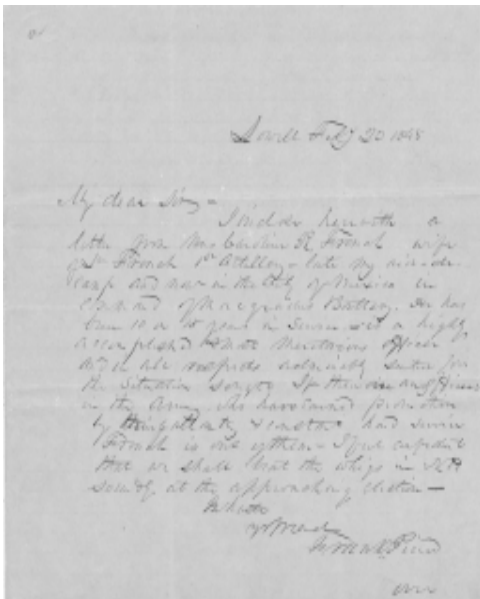 Lowell Feby 20 1848
My dear Sir,
I inclose herewith a
letter from Mrs Caroline R. French wife
of Lt French 1st Artillery - late my aid-de-
camp and now in the City of Mexico in
command of Magruders Battery. He has
been 10 or years in service is a highly
accomplished & most meritorious officer
and in all respects admirably suited for
the situation sought. If there are any officers
in the Army who have earned promotion
by their gallantry & constant hard service
French is one of them - I feel confident
that we shall beat the whigs in N.H.
soundly at the approaching election -
In haste
yr friend
Frank Pierce
over